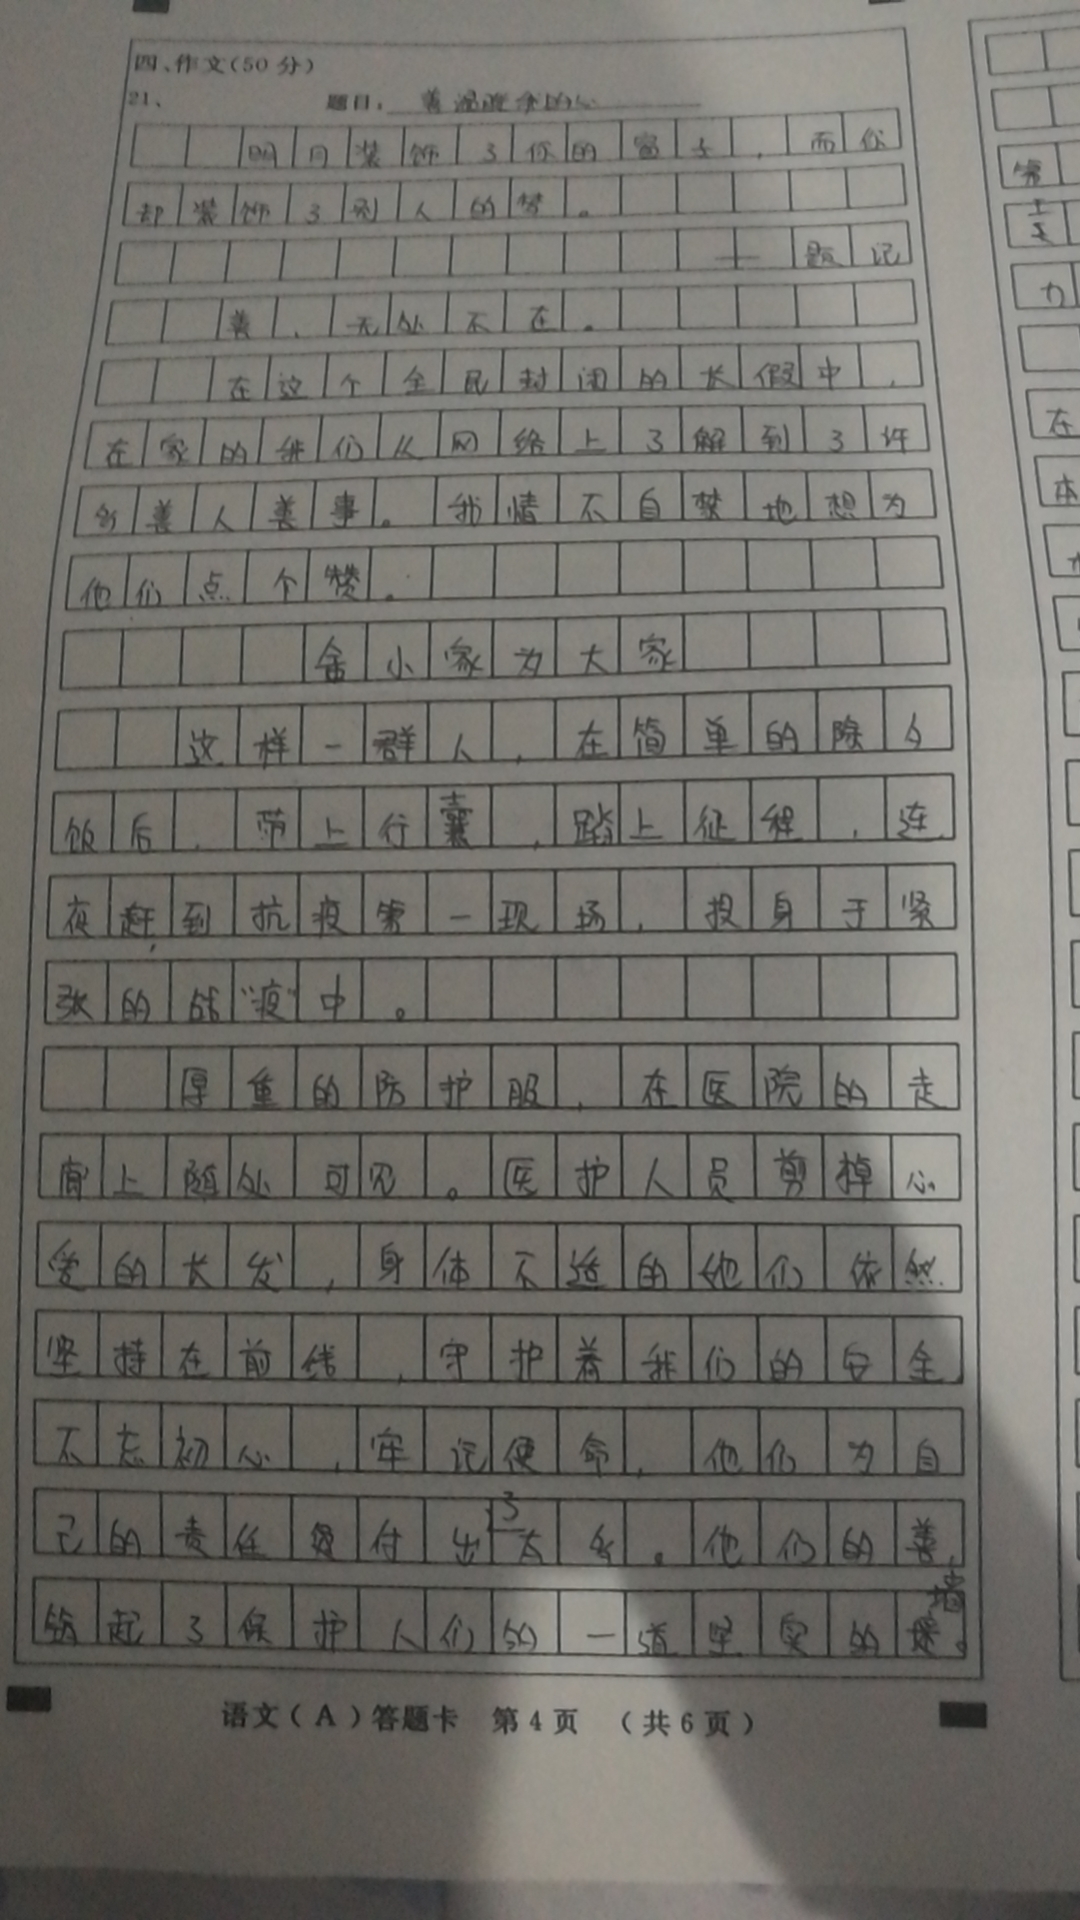 四、作文(50分)
21、 题目：善温暖你的心
明月装饰了你的窗子，而你
却装饰了别人的梦。
——题记
善，无处不在。
在这个全民封闭的长假中，
在家的我们从网络上了解到了许
多善人善事。我情不自禁地想为
他们点个赞。
舍小家为大家
这样一群人，在简单的除夕
饭后，带上行囊，踏上征程，连
夜赶到抗疫第一现场，投身于紧
张的战“疫”中。
厚重的防护服，在医院的走
廊上随处可见。医护人员剪掉心
爱的长发，身体不适的他们依然
坚持在前线，守护着我们的安全
不忘初心，牢记使命，他们为自
己的责任付出了太多。他们的善，
筑起了保护人们的一道坚实的墙。
语文(A)答题卡 第4页 (共6页)
第
力
在
本